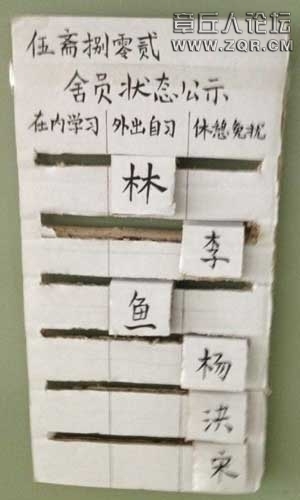 章丘人论坛
www.ZQR.CN
伍斋捌零贰
舍员状态公示
在内学习 外出自习 休憩免扰
林
李
鱼
杨
洪
宋